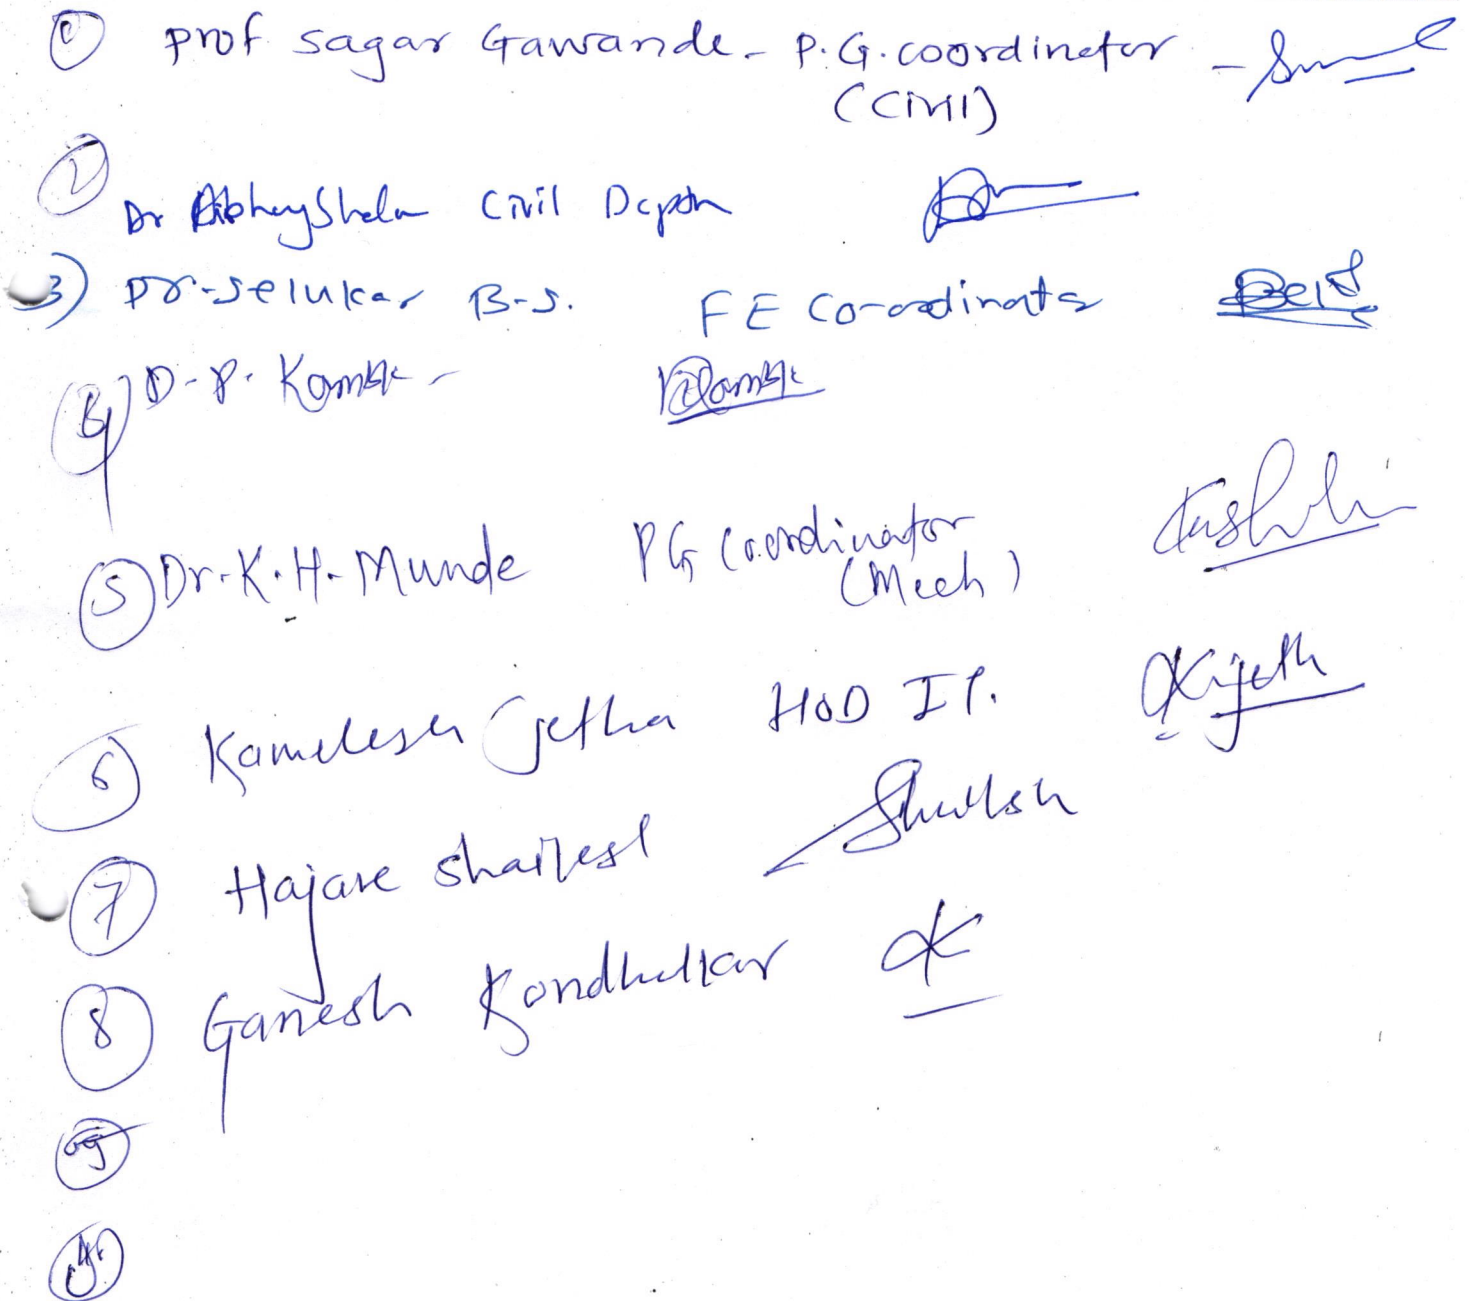 ① Prof Sagar Gawande - P.G. coordinator -
(Civil)
② Dr Abhay Shelar Civil Deptt
3) Dr. Selukar B.S. FE Co-ordinator
④ D.P. Kamble
⑤ Dr. K. H. Munde PG Coordinator
(Mech)
⑥ Kamelesh Jetha HOD IT.
⑦ Hajare Shailesh Shailesh
⑧ Ganesh Kondhalkar